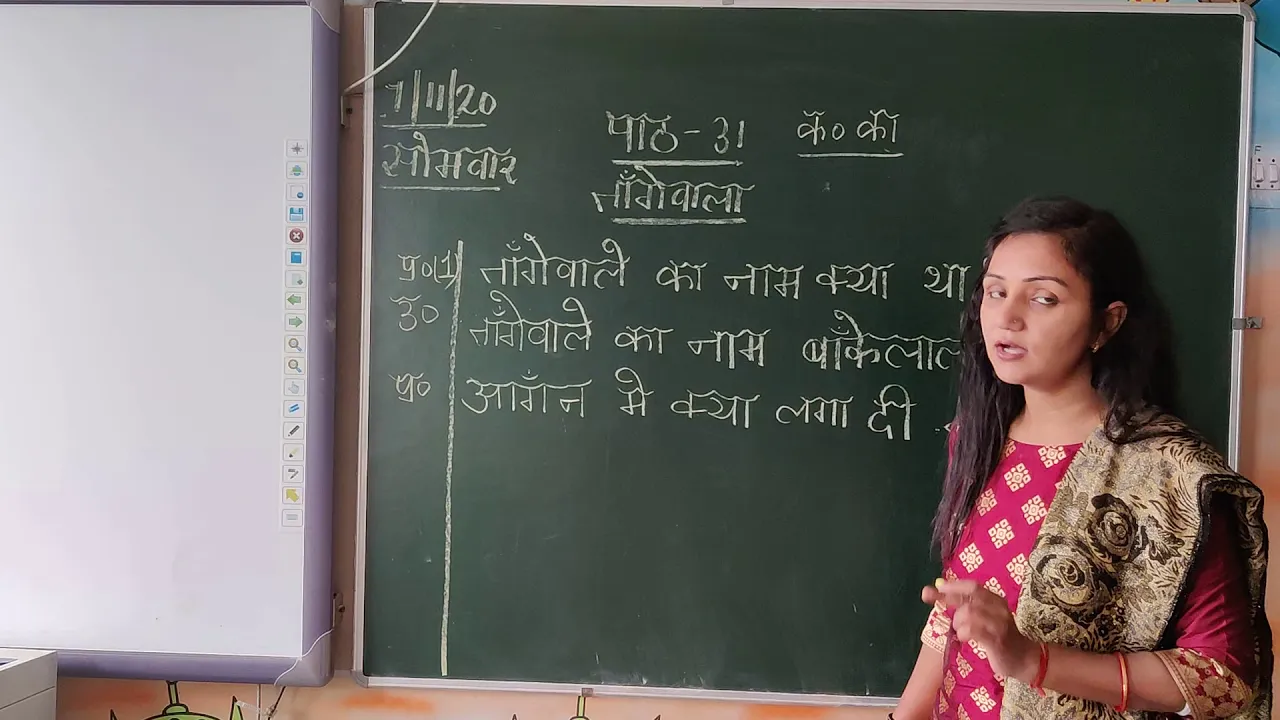 7/11/20
सोमवार
पाठ-31 क० का०
ताँगेवाला
प्र०(1) ताँगेवाले का नाम क्या था
उ० ताँगेवाले का नाम बाँकेलाल
प्र० आगँन मे क्या लगा दी